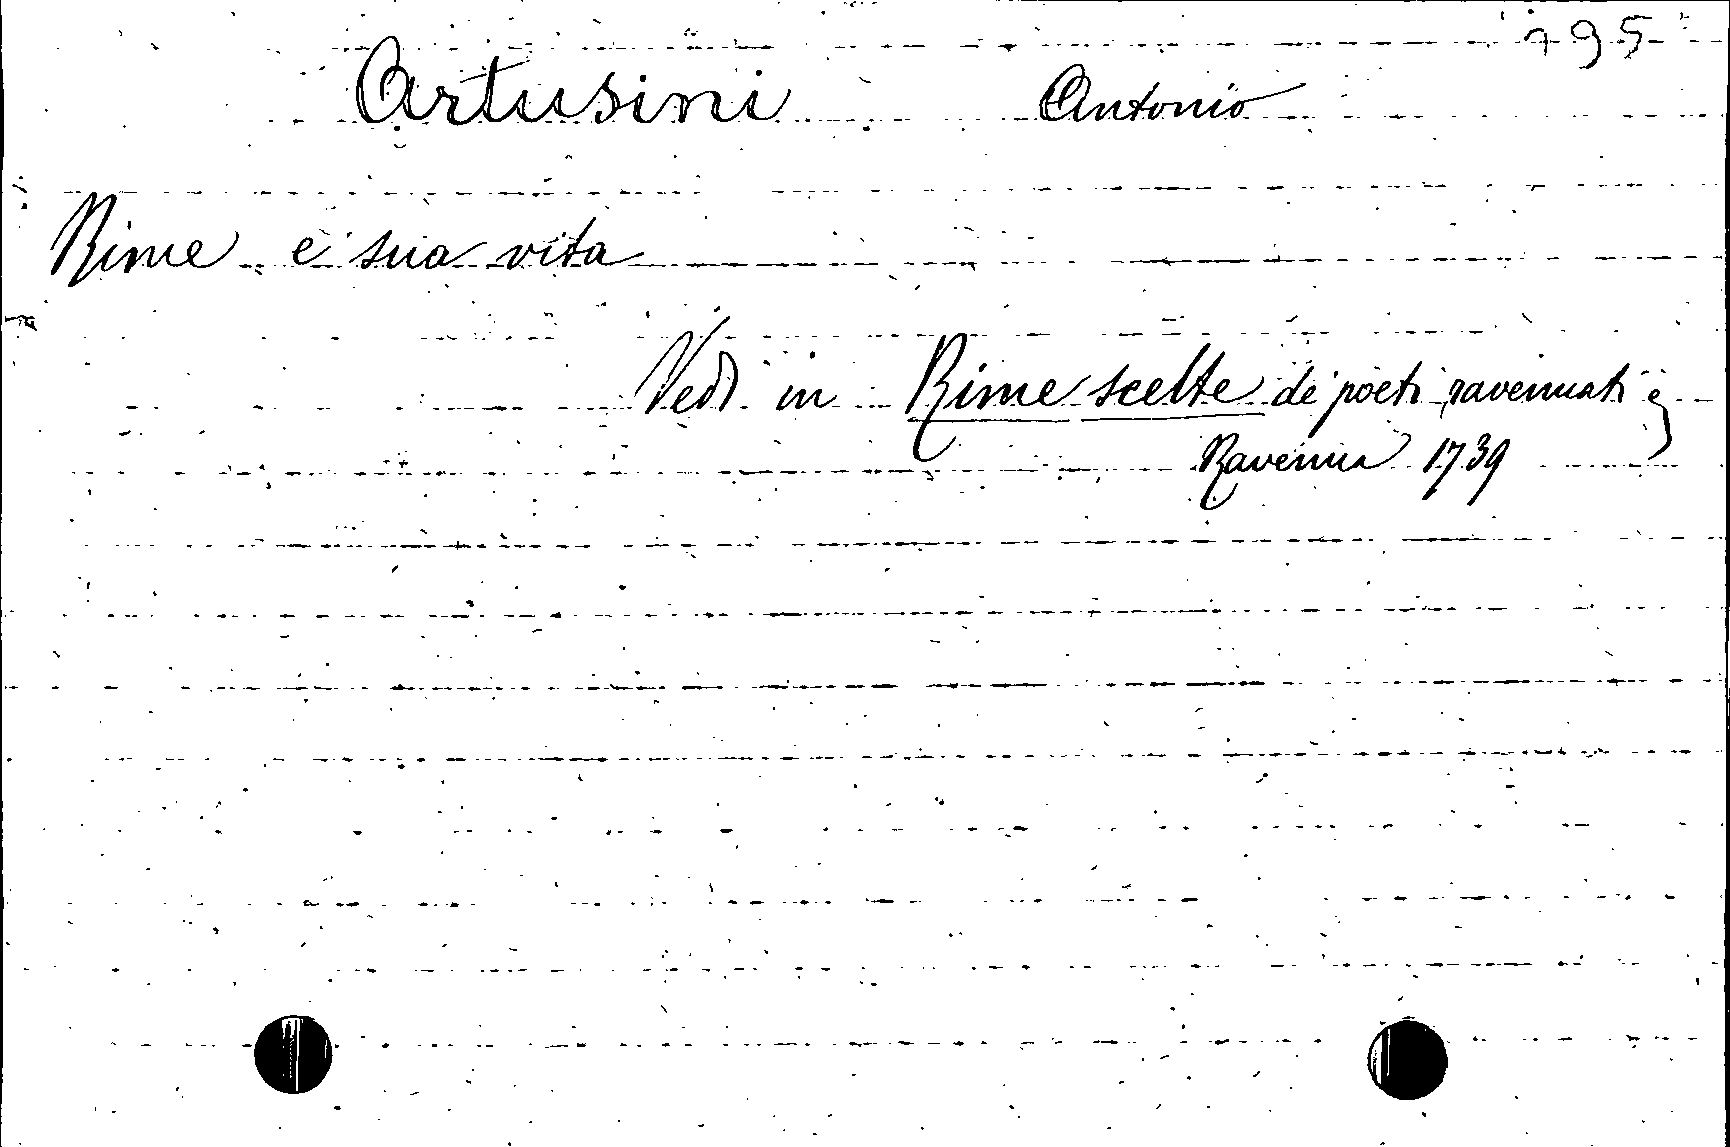 195
Artusini Antonio
Rime e sua vita
Vedi in Rime scelte de' poeti ravennati ecc
Ravenna 1739